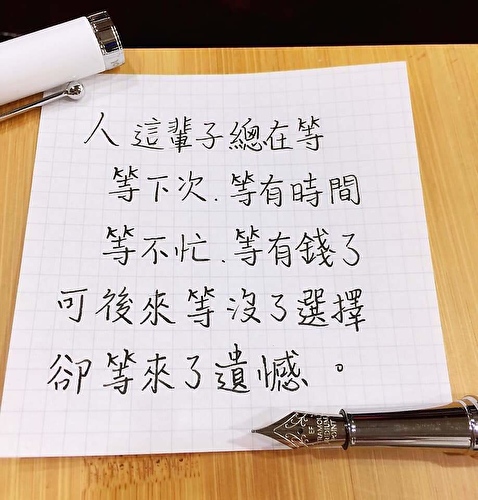 人這輩子總在等
等下次.等有時間
等不忙.等有錢了
可後來等沒了選擇
卻等來了遺憾。